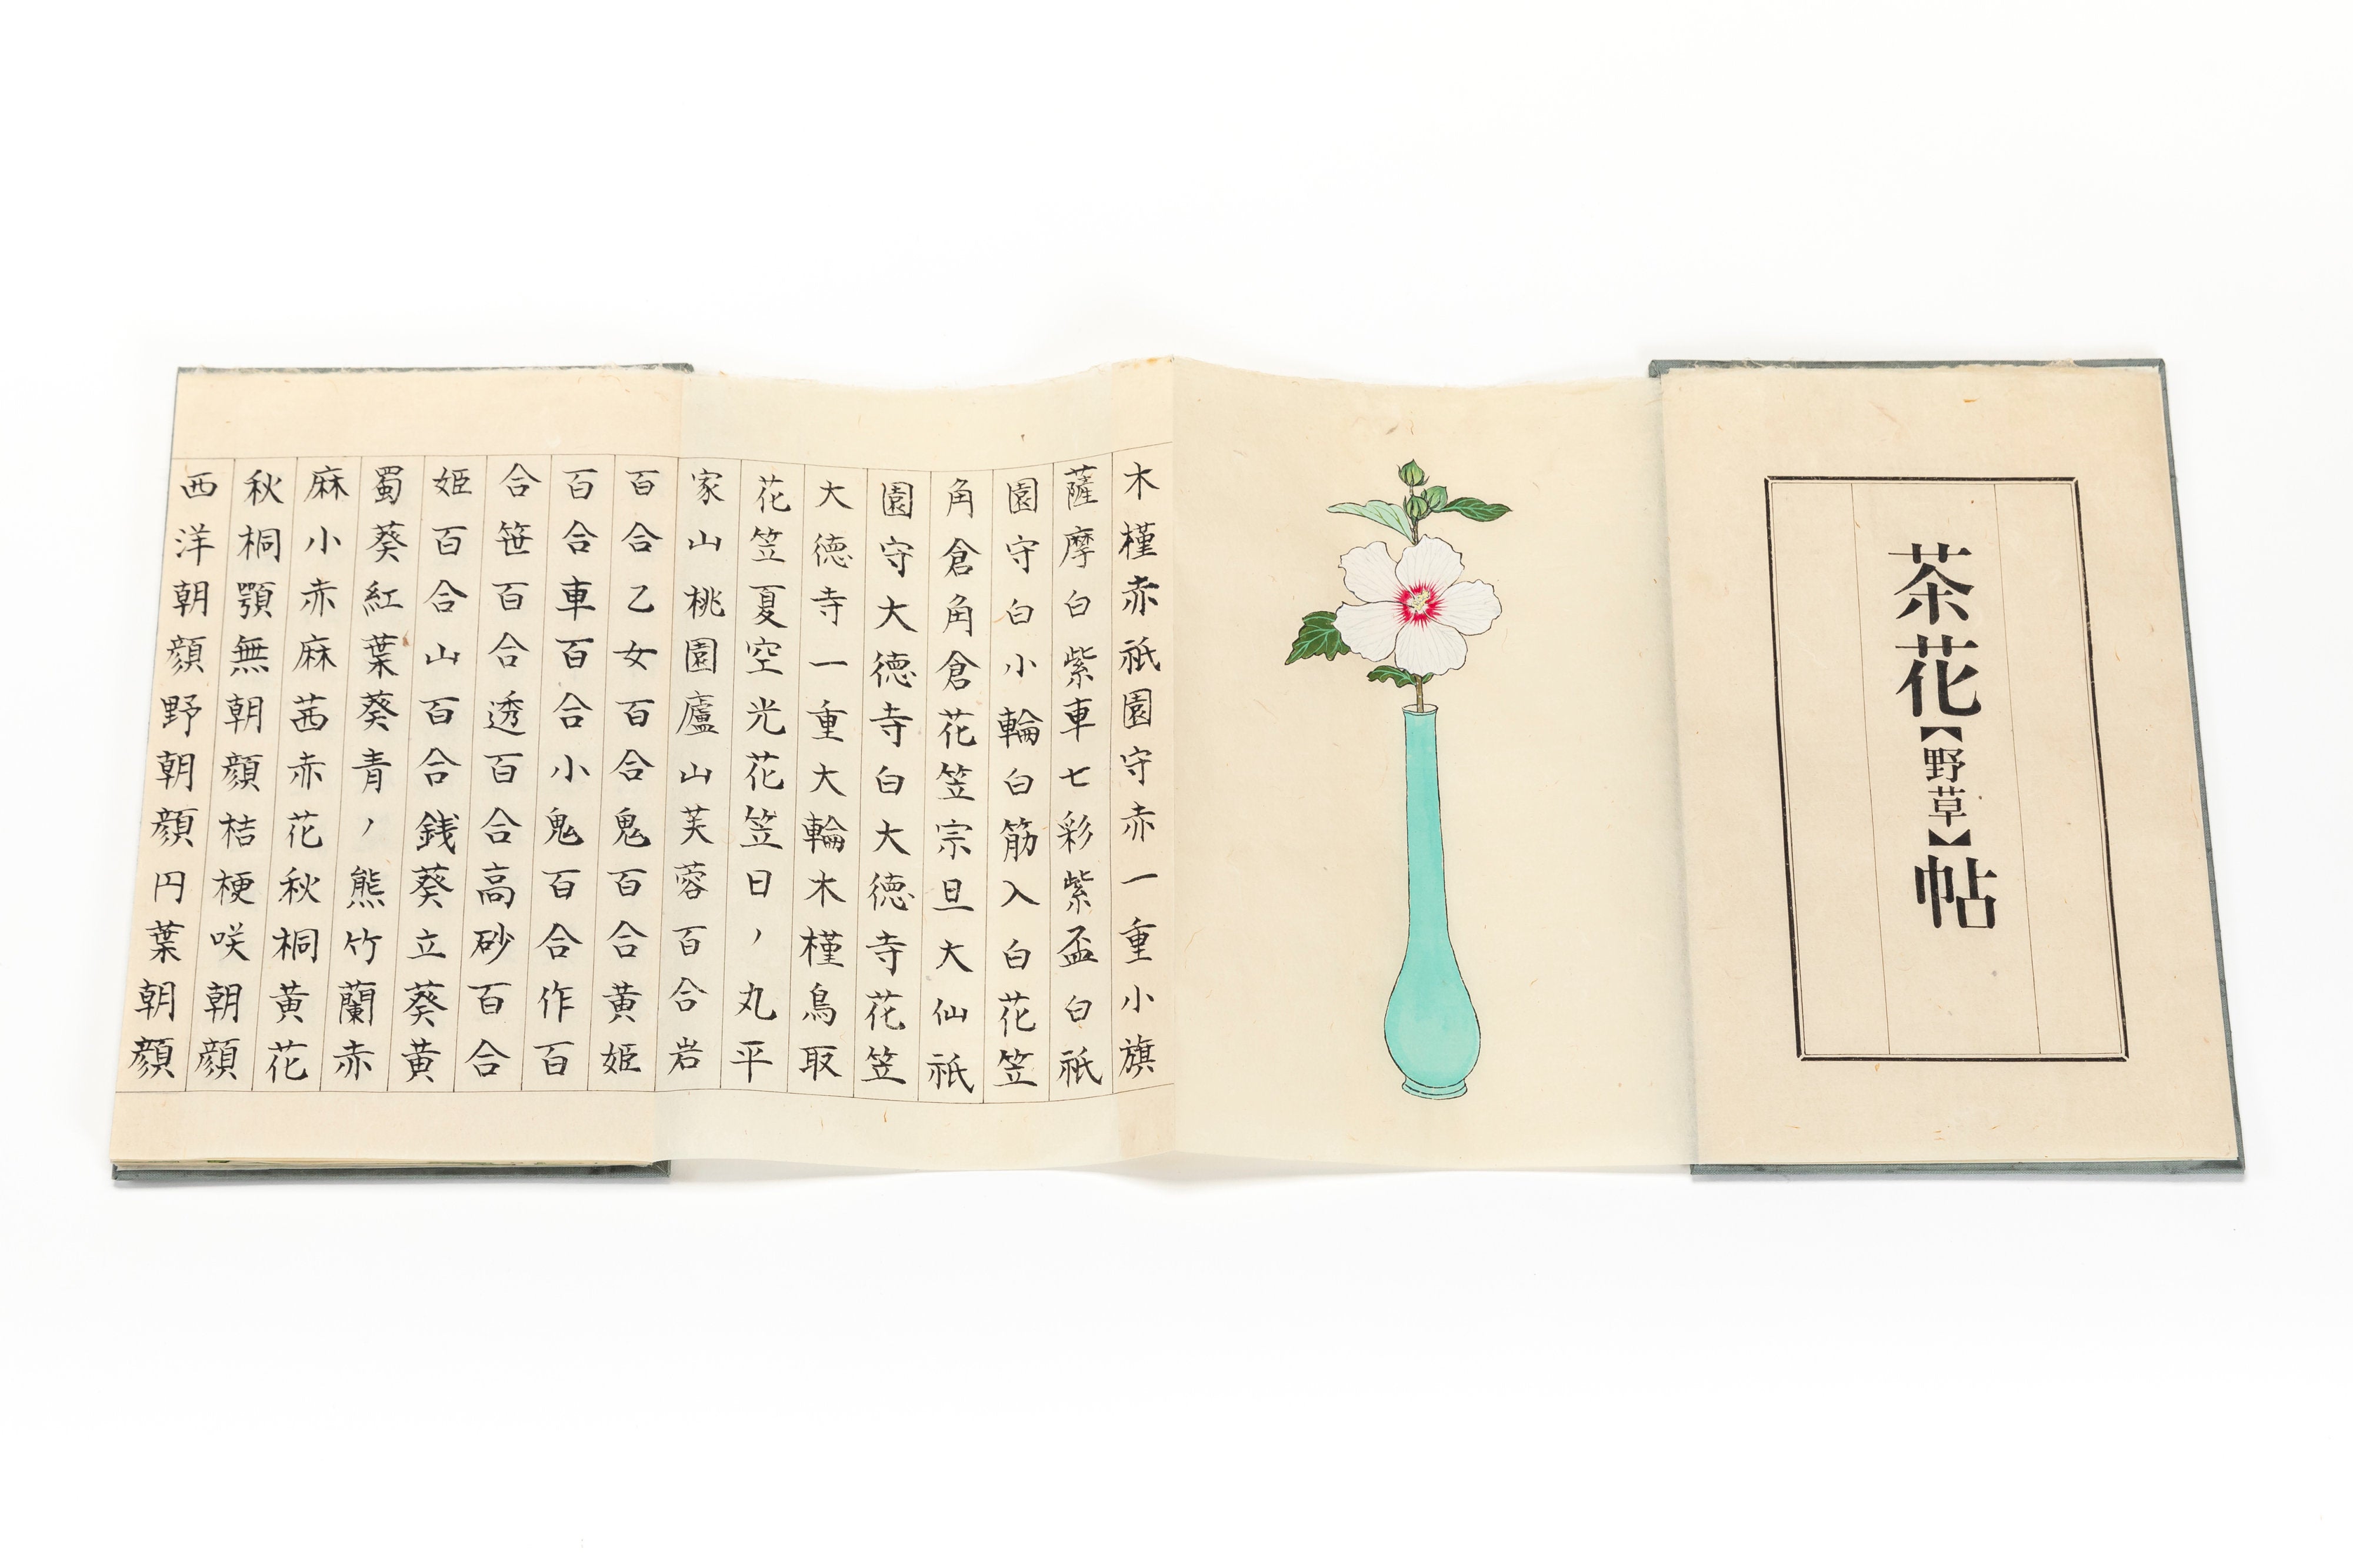 茶花【野草】帖
木槿赤祇園守赤一重小旗
薩摩白紫車七彩紫盃白祇
園守白小輪白筋入白花笠
角倉角倉花笠宗旦大仙祇
園守大徳寺白大徳寺花笠
大徳寺一重大輪木槿鳥取
花笠夏空光花笠日ノ丸平
家山桃園廬山芙蓉百合岩
百合乙女百合鬼百合黄姫
百合車百合小鬼百合作百
合笹百合透百合高砂百合
姫百合山百合銭葵立葵黄
蜀葵紅葉葵青ノ熊竹蘭赤
麻小赤麻茜赤花秋桐黄花
秋桐顎無朝顔桔梗咲朝顔
西洋朝顔野朝顔円葉朝顔